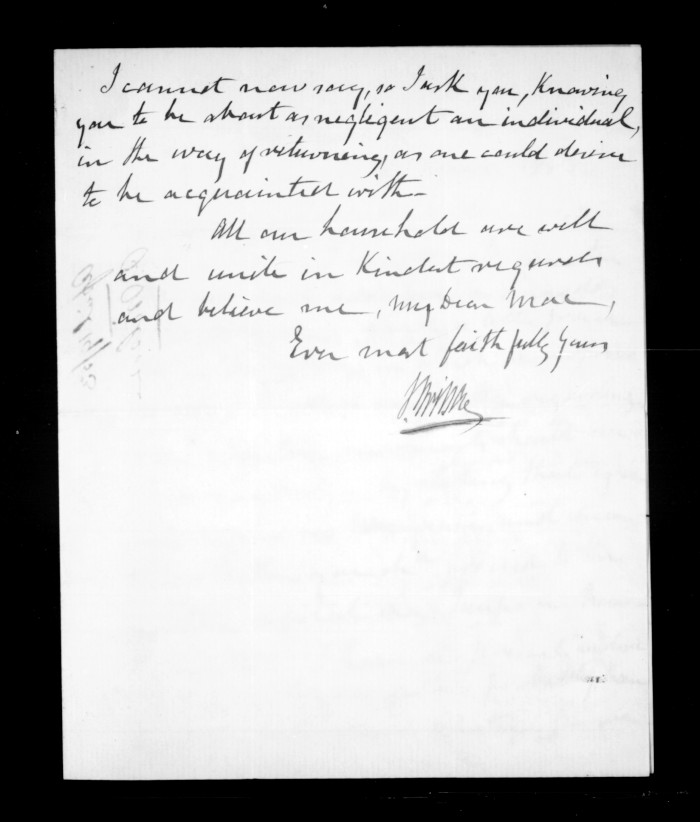 I cannot now say, so I ask you, Knowing
you to be about as negligent an individual,
in the way of returning, as one could desire
to be acquainted with –
All our household are well
and unite in Kindest regards
and believe me, My Dear Mac,
Ever most faithfully Yours